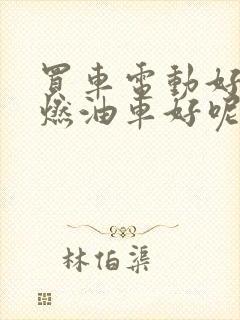 買車電動好
燃油車好呢
林伯渠